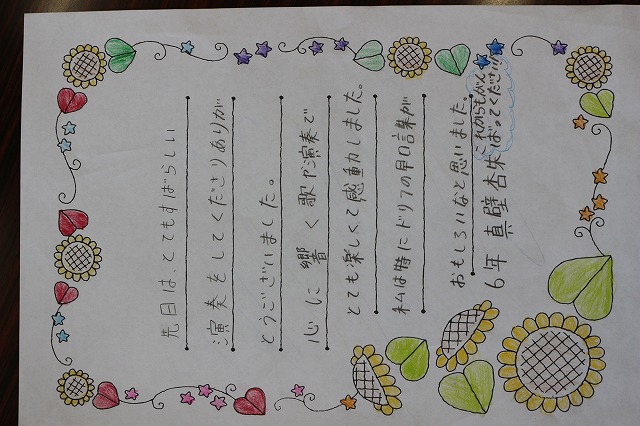 先日は、とてもすばらしい
演奏をしてくださりありが
とうございました。
心に響く歌や演奏で
とても楽しくて感動しました。
私は特にドリフの早口言葉が
おもしろいなと思いました。
これからもがん
ばってください!!
6年 真壁 杏朱